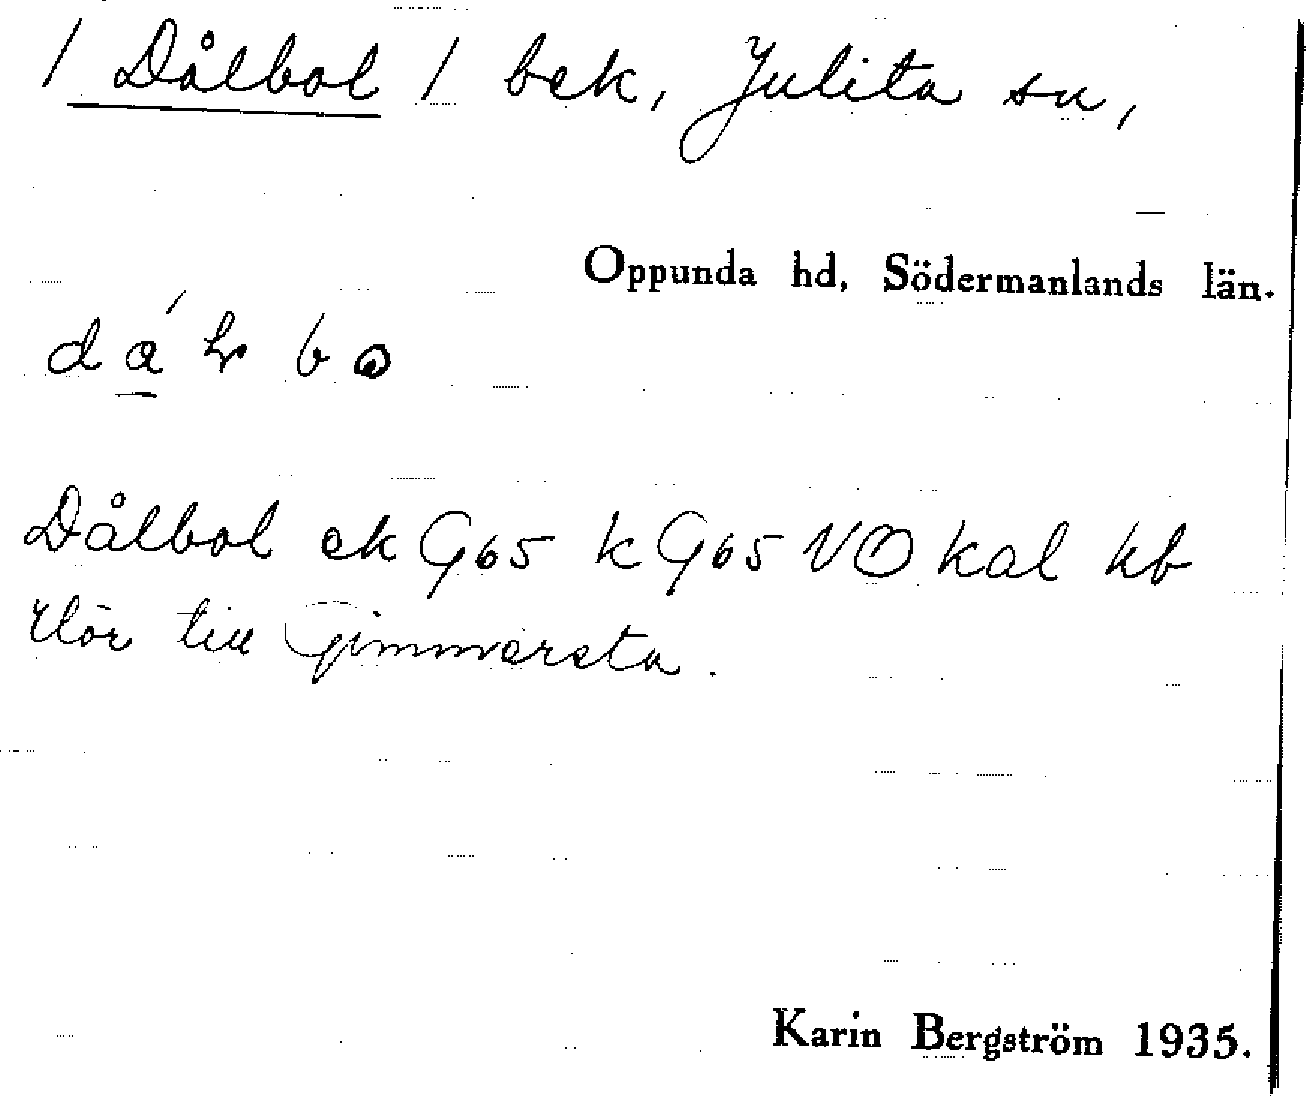 / Dålbol / bek, Julita sn,
Oppunda hd, Södermanlands län.
Dålbol ek G65 k G65 VO kal kb
Hör till Gimmersta.
Karin Bergström 1935.